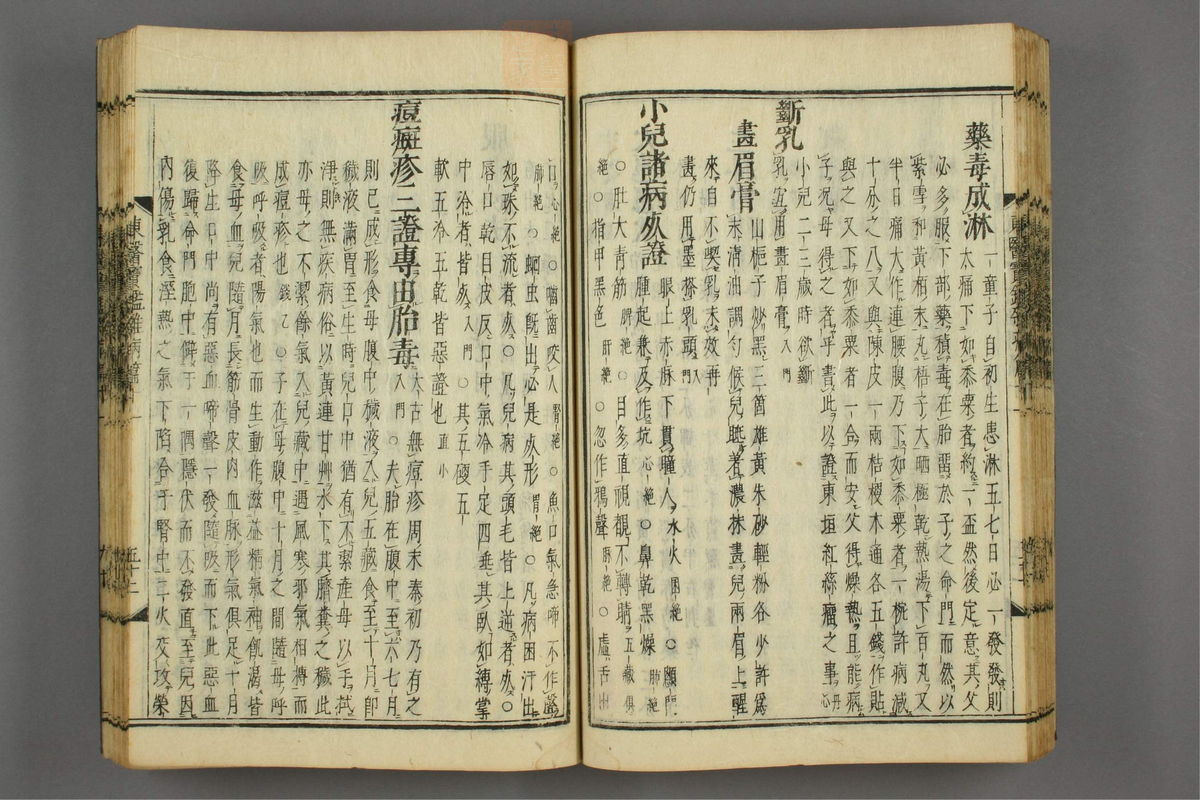 藥毒成淋 一童子自初生患淋五七日必一發發則
大痛下如黍粟者約一盃然後定意其父
必多服下部藥積毒在胎留於子之命門而然以
紫雪和黃栢末丸梧子大晒極乾熱湯下百丸又
半日痛大作連腰腹乃下如黍粟者一椀許病減
十分之八又與陳皮一兩桔梗木通各五錢作一貼
與之又下如黍粟者一合而安父得燥熱且能病
子況母得之者乎書此以證東垣紅絲瘤之事丹心
斷乳
小兒二三歲時欲斷
乳宜用畫眉膏入門
畫眉膏 山梔子炒黑三箇雄黃朱砂輕粉各少許爲
末淸油調勻候兒睡著濃抹畫兒兩眉上醒
來自不喫乳未效再
畫仍用墨搽乳頭入門
小兒諸病死證 眼上赤脉下貫瞳人水火困絕○顖門
腫起兼及作坑心絕○鼻乾黑燥肺絕
○肚大靑筋脾絕○目多直視覩不轉睛五藏俱
絕○指甲黑色肝絕○忽作鴉聲肺絕○虛舌出
口心絕○囓齒咬人腎絕○魚口氣急啼不作聲
肺絕○蛔虫旣出必是死形胃絕○凡病困汗出
如珠不流者死○凡兒病其頭毛皆上逆者死○
唇口乾目皮反口中氣冷手足四垂其臥如縛掌
中冷者皆死入門○其五硬五
軟五冷五乾皆惡證也直小
痘癍疹二證專出胎毒 太古無痘疹周末秦初乃有之
入門○夫胎在腹中至六七月
則已成形食母腹中穢液入兒五藏食至十月卽
穢液滿胃至生時兒口中猶有不潔產母以手拭
淨則無疾病俗以黃連甘艸水下其臍糞之穢此
亦母之不潔餘氣入兒藏中遇風寒邪氣相搏而
成痘疹也錢乙○子在母腹中十月之間隨母呼
吸呼吸者陽氣也而生動作滋益精氣神飢渴皆
食母血兒隨月長筋骨皮肉血脉形氣俱足十月
降生口中尚有惡血啼聲一發隨吸而下此惡血
復歸命門胞中僻于一隅隱伏而不發直至兒因
內傷乳食濕熱之氣下陷合于腎中二火交攻榮
東醫寶鑑雜病篇